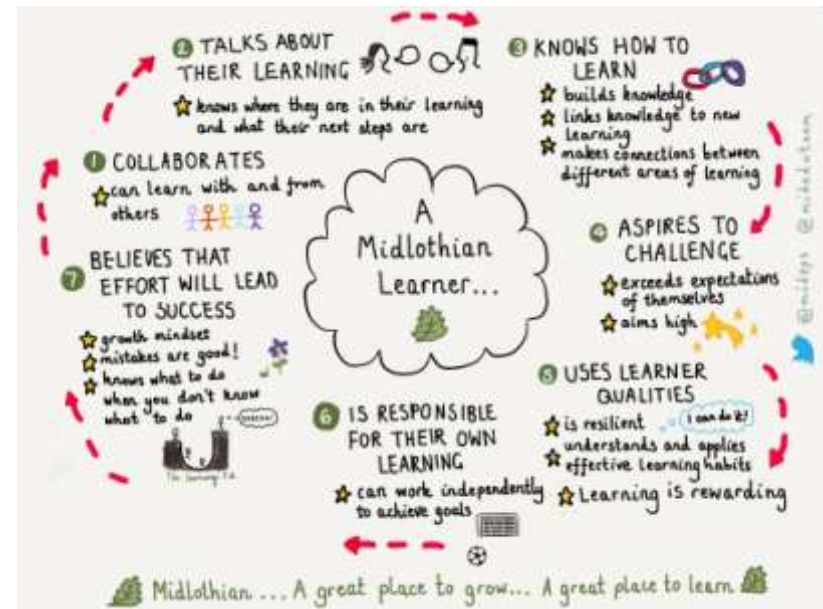 A
Midlothian
Learner...
1 COLLABORATES
can learn with and from
others
2 TALKS ABOUT
THEIR LEARNING
knows where they are in their learning
and what their next steps are
3 KNOWS HOW TO
LEARN
builds knowledge
links knowledge to new
learning
makes connections between
different areas of learning
4 ASPIRES TO
CHALLENGE
exceeds expectations
of themselves
aims high
5 USES LEARNER
QUALITIES
is resilient
I can do it!
understands and applies
effective learning habits
Learning is rewarding
6 IS RESPONSIBLE
FOR THEIR OWN
LEARNING
can work independently
to achieve goals
7 BELIEVES THAT
EFFORT WILL LEAD
TO SUCCESS
growth mindset
mistakes are good!
knows what to do
when you don't know
what to do
The Learning Pit
Midlothian ... A great place to grow... A great place to learn